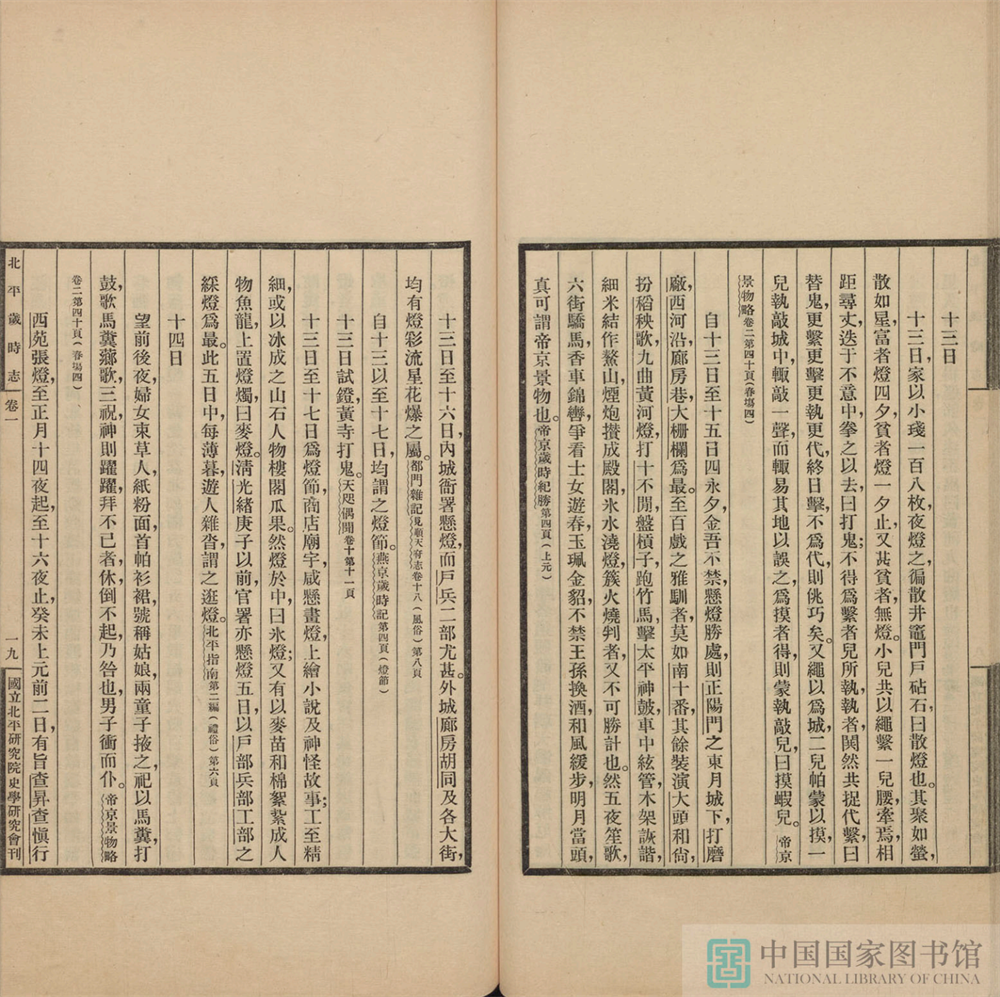 十三日
十三日，家以小琖一百八枚，夜燈之，徧散井竈門戶砧石，曰散燈也。其聚如螢，
散如星，富者燈四夕，貧者燈一夕止，又甚貧者無燈。小兒共以繩繫一兒腰，牽焉，相
距尋丈，迭于不意中，拳之以去，曰打鬼；不得爲繫者兒所執，執者鬨然共捉代繫，曰
替鬼，更繫更擊，更執更代，終日擊，不爲代，則佻巧矣。又繩以爲城，二兒帕蒙以摸，一
兒執敲城中，輒敲一聲，而輒易其地以誤之，爲摸者得，則蒙執敲兒，曰摸蝦兒。帝京
景物略卷二第四十頁（春場四）
自十三日至十五日四永夕，金吾不禁，懸燈勝處，則正陽門之東月城下，打磨
廠，西河沿，廊房巷，大柵欄爲最。至百戲之雅馴者，莫如南十番，其餘裝演大頭和尙，
扮稻秧歌，九曲黃河燈，打十不閒，盤槓子，跑竹馬，擊太平神鼓，車中絃管，木架詼諧，
細米結作鰲山，煙炮攅成殿閣，氷水澆燈，簇火燒判者，又不可勝計也。然五夜笙歌，
六街驕馬，香車錦轡，爭看士女遊春，玉珮金貂，不禁王孫換酒，和風緩步，明月當頭，
真可謂帝京景物也。帝京歲時紀勝第四頁（上元）
十三日至十六日，內城衙署懸燈，而戶兵二部尤甚。外城廊房胡同及各大街，
均有燈彩流星花爆之屬。都門雜記見順天府志卷十八（風俗）第八頁
自十三以至十七日，均謂之燈節。燕京歲時記第四頁（燈節）
十三日試鐙，黃寺打鬼。天咫偶聞卷十第十一頁
十三日至十七日爲燈節，商店廟宇，咸懸畫燈，上繪小說及神怪故事；工至精
細，或以冰成之山石人物樓閣瓜果。然燈於中，曰氷燈；又有以麥苗和棉絮紮成人
物魚龍，上置燈燭，曰麥燈。淸光緒庚子以前，官署亦懸燈五日，以戶部兵部工部之
綵燈爲最。此五日中，每薄暮，遊人雜沓，謂之逛燈。北平指南第二編（禮俗）第六頁
十四日
望前後夜，婦女束草人，紙粉面，首帕衫裙，號稱姑娘，兩童子掖之，祀以馬糞，打
鼓，歌馬糞薌歌，三祝，神則躍躍，拜不已者，休，倒不起，乃咎也，男子衝而仆。（帝京景物略
卷二第四十頁（春場四）
西苑張燈，至正月十四夜起，至十六夜止，癸未上元前二日，有旨查昇查愼行
北平歲時志 卷一 一九 國立北平研究院史學研究會刊
中国国家图书馆
NATIONAL LIBRARY OF CHINA